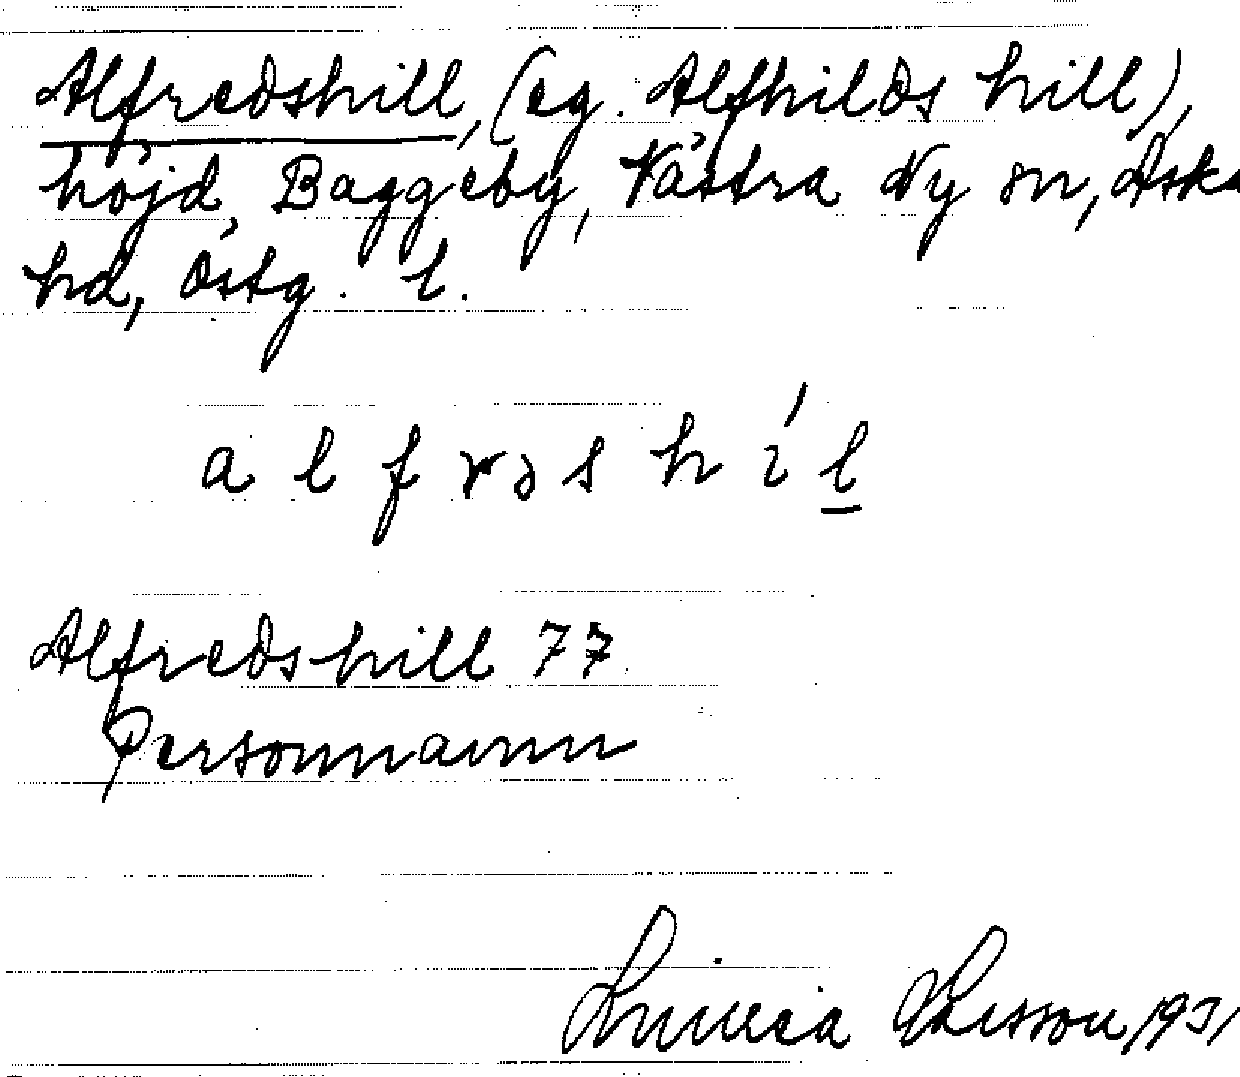 Alfredshill, (eg. Alfhilds hill),
höjd, Baggeby, Västra Ny sn, Aska
hd, Östg. l.
a l f r ə s h í l
Alfredshill 77
Personnamn
Linnea Olsson, 1931